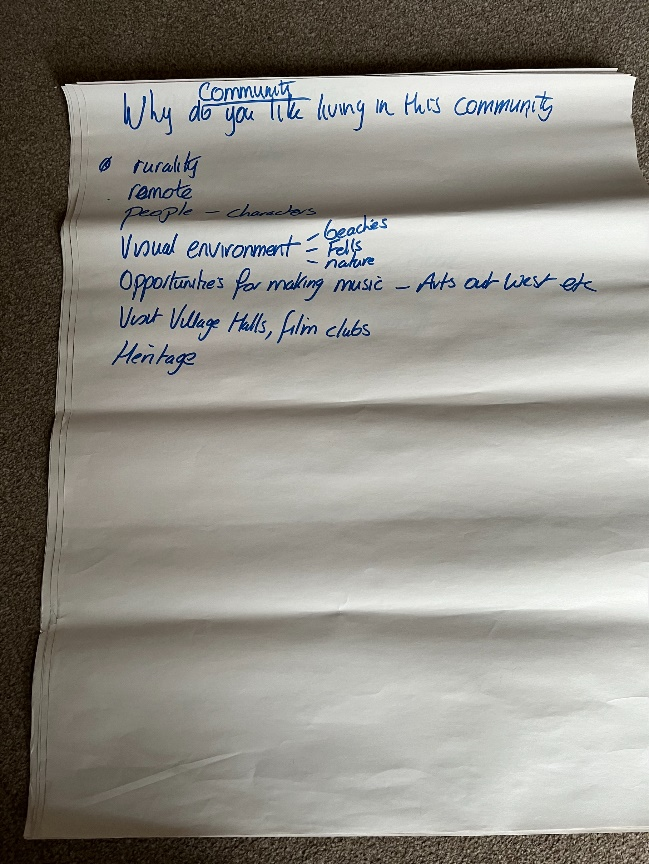 Community
Why do you like living in this community
rurality
remote
people – characters
Visual environment – beaches
– Fells
– nature
Opportunities for making music – Arts out West etc
Visit Village Halls, film clubs
Heritage